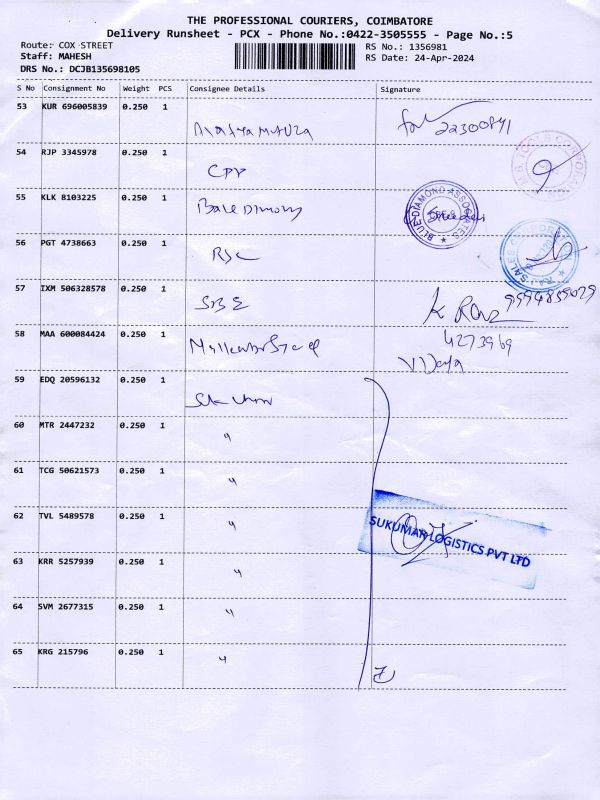 THE PROFESSIONAL COURIERS, COIMBATORE
Delivery Runsheet - PCX - Phone No.:0422-3505555 - Page No.:5
Route: COX STREET
Staff: MAHESH
DRS No.: DCJB135698105
RS No.: 1356981
RS Date: 24-Apr-2024
S No Consignment No Weight PCS Consignee Details Signature
53 KUR 696005839 0.250 1
22300841
54 RJP 3345978 0.250 1 CPP
55 KLK 8103225 0.250 1
BLUE DIAMOND ASSOCIATES
56 PGT 4738663 0.250 1 RSC
57 IXM 506328578 0.250 1 SBE
58 MAA 600084424 0.250 1
4273969
Vijaya
59 EDQ 20596132 0.250 1
60 MTR 2447232 0.250 1 "
61 TCG 50621573 0.250 1 "
62 TVL 5489578 0.250 1 "
SUKUMAR LOGISTICS PVT LTD
63 KRR 5257939 0.250 1 "
64 SVM 2677315 0.250 1 "
65 KRG 215796 0.250 1 "